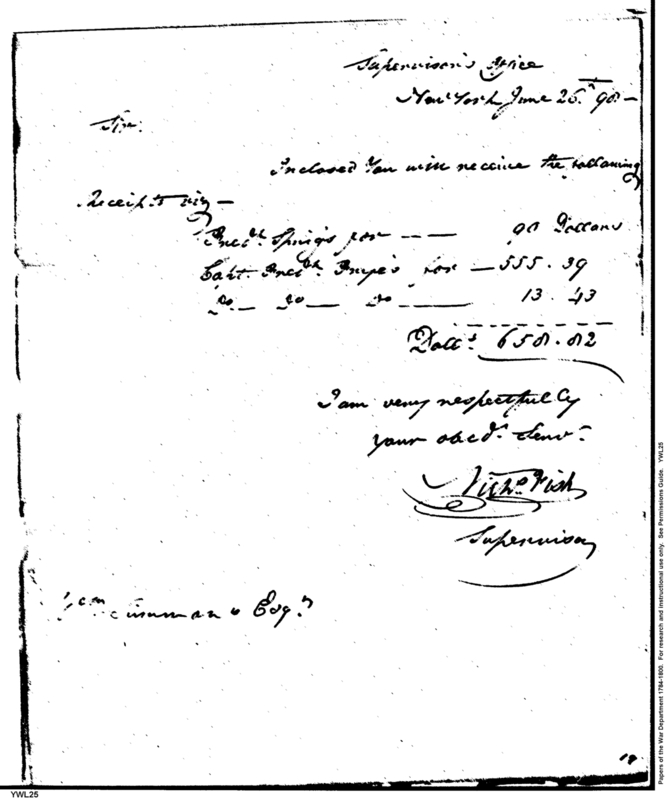 Supervisor's Office
New York June 26.th 98 —
Sir.
Inclosed You will receive the following
Receipts viz —
Fredk. Springs for — — 90 Dollars
Capt. Fredk. for — 555.39
Do — Do — Do — 13.43
Dolls. 658.82
I am very respectfully
your obedt. Servt.
Nichs Fish
Supervisor
Simmons Esqr.
18
YWL25
Papers of the War Department 1784-1800. For research and instructional use only. See Permissions Guide. YWL25